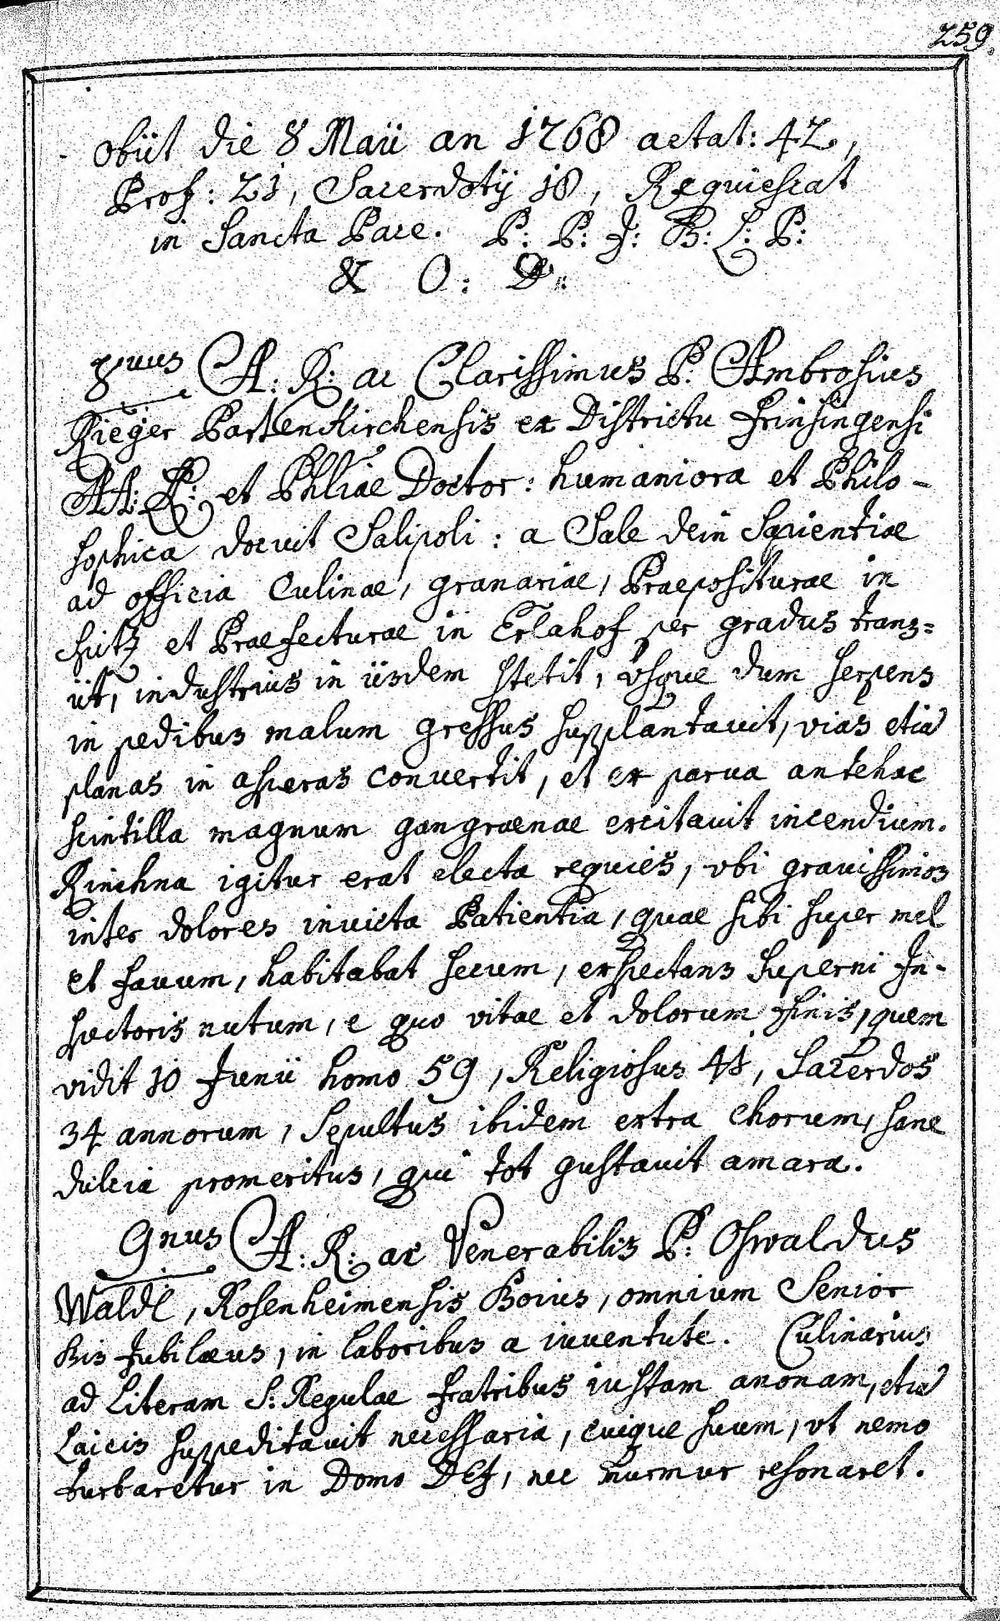 259.
obiit die 8 Maii an 1768 aetat: 42,
Prof: 21, Sacerdotij 18, Requiescat
in Sancta Pace. P: P: J: B: L: P:
& O: D:
8vus A: R: ac Clarissimus P. Ambrosius
Rieger Partenkirchensis ex Districtu Frisingensi
AA: LL: et Phliae Doctor: humaniora et Philo-
sophica docuit Salipoli: a Sale dein Sapientiae
ad officia Culinae, granariae, Praepositurae in
et Praefecturae in Erlahof per gradus trans=
iit, industrius in iisdem stetit, vsque dum serpens
in pedibus malum gressus supplantauit, vias etia
planas in asperas conuertit, et ex parua antehac
scintilla magnum gangraenae excitauit incendium.
Rinchna igitur erat electa requies, vbi grauissimos
inter dolores inuicta Patientia, quae sibi super mel
et fauum, habitabat secum, exspectans Superni In-
spectoris nutum, e quo vitae et dolorum finis, quem
vidit 10 Junii homo 59, Religiosus 41, Sacerdos
34 annorum, Sepultus ibidem extra Chorum, sane
dulcia promeritus, qui tot gustauit amara.
9nus A: R: ac Venerabilis P: Oswaldus
Waldl, Rosenheimensis Boius, omnium Senior
Bis Jubilaeus, in laboribus a iuuentute. Culinarius
ad Literam S: Regulae fratribus iustam anonam, etia
Laicis suppeditauit necessaria, cuique suum, vt nemo
turbaretur in Domo DEJ, nec murmur resonaret.